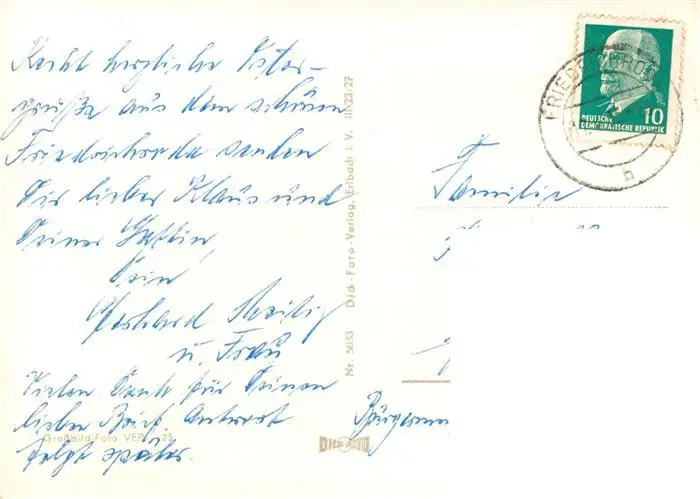 Recht herzliche Oster-
grüße aus dem schönen
Friedrichroda senden
Dir lieber Klaus und
Deiner Gattin
Dein
Gerhard
u. Frau
Vielen Dank für Deinen
lieben Brief. Antwort
folgt später.
Großbild-Foto VEB 25
Nr. 5033 Dick-Foto-Verlag, Erlbach i. V. III/23/27
DICK FOTO
FRIEDRICHROD
b
10
DEUTSCHE
DEMOKRATISCHE REPUBLIK
Familie